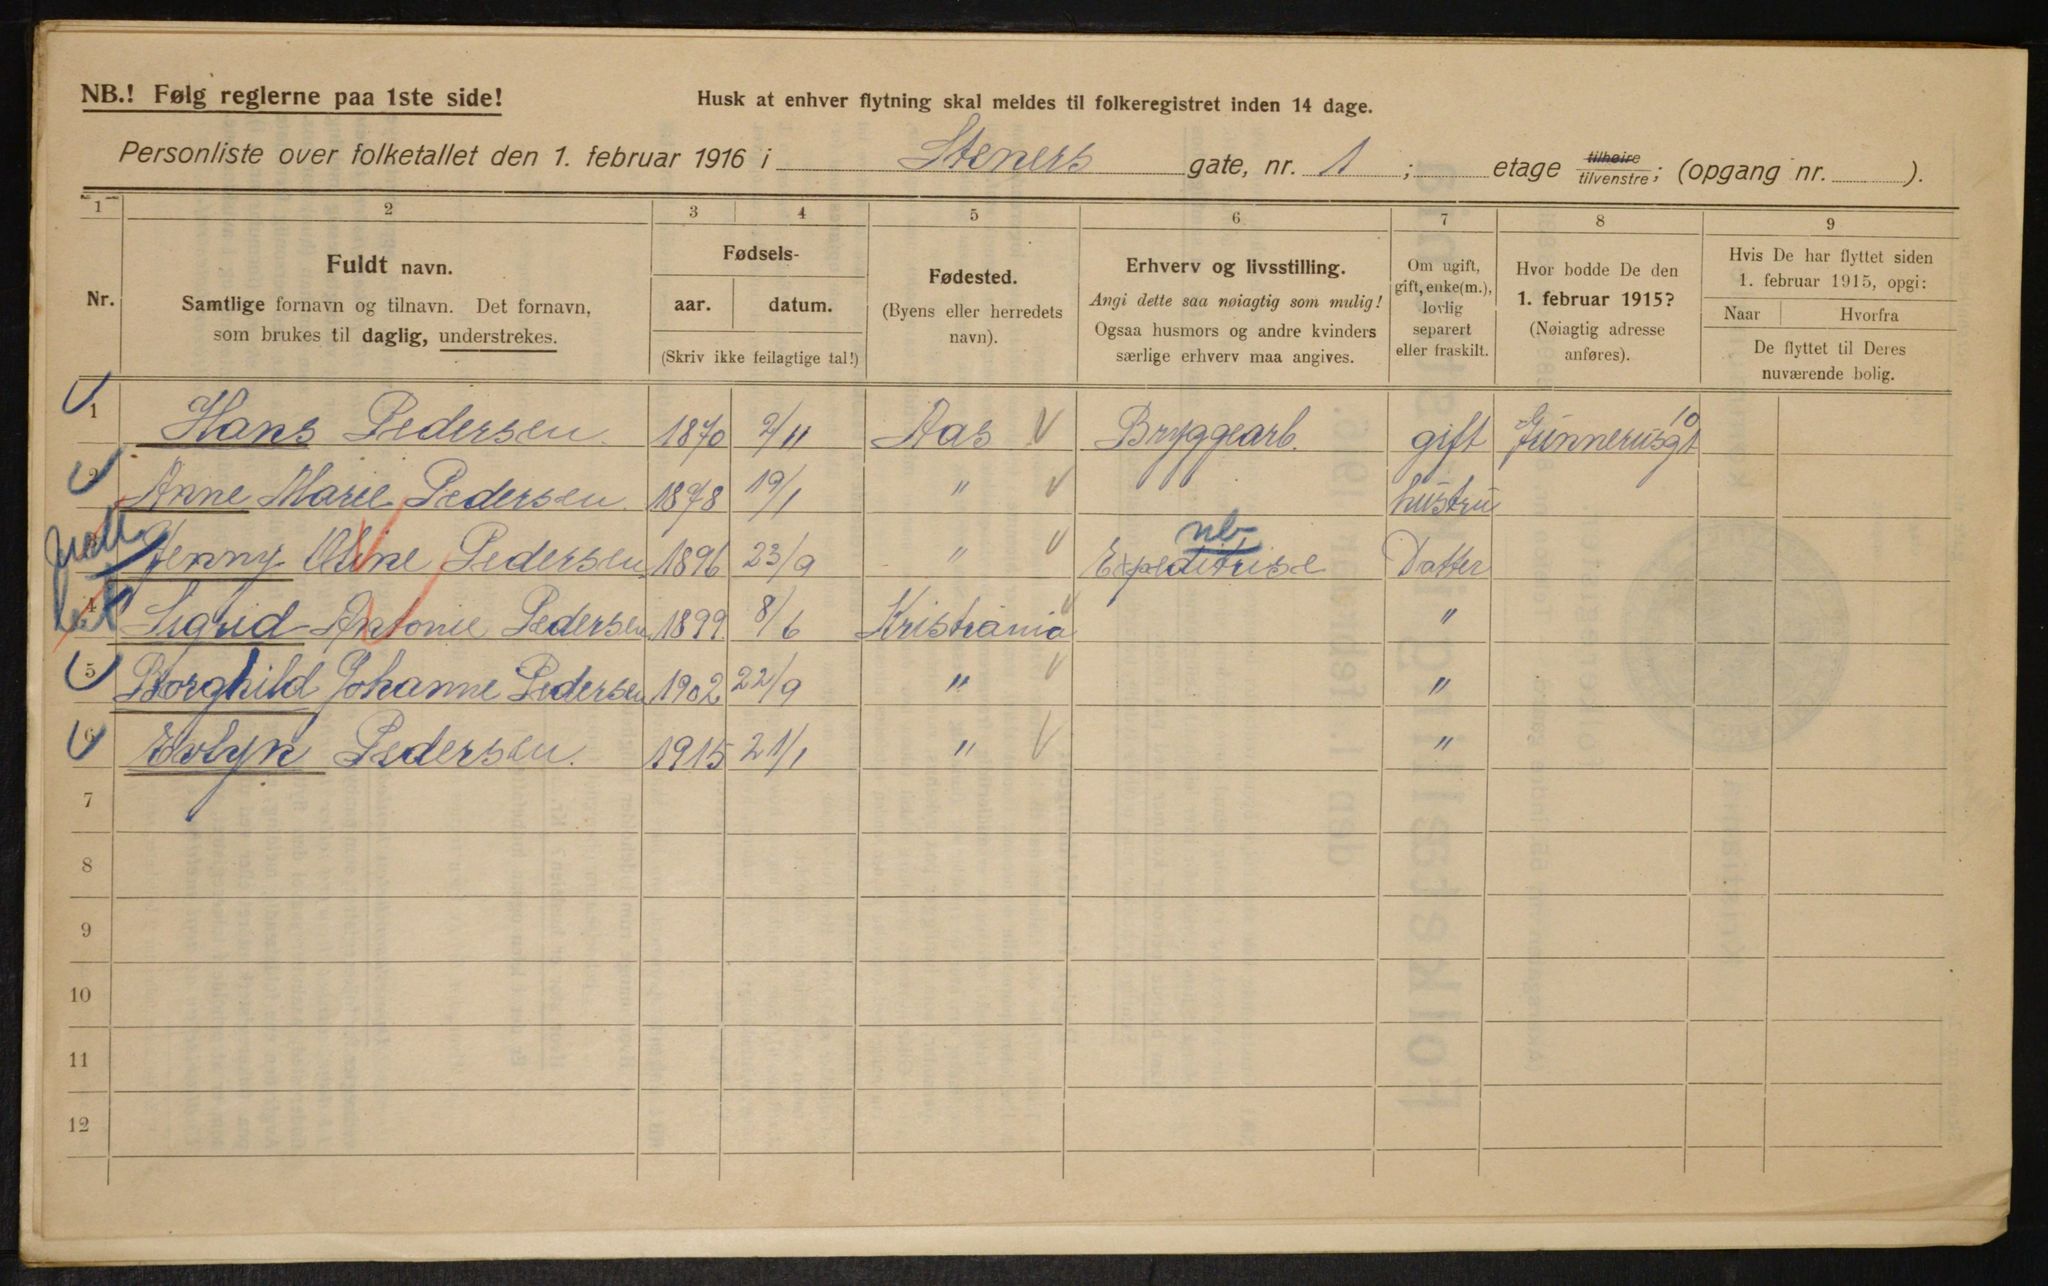 NB.! Følg reglerne paa 1ste side!
Husk at enhver flytning skal meldes til folkeregistret inden 14 dage.
Personliste over folketallet den 1. februar 1916 i Steners gate, nr. 1 ; etage tilhøire tilvenstre; (opgang nr. ).
1 2 3 4 5 6 7 8 9
Nr.
Fuldt navn.
Samtlige fornavn og tilnavn. Det fornavn,
som brukes til daglig, understrekes.
Fødsels-
aar. datum.
(Skriv ikke feilagtige tal!)
Fødested.
(Byens eller herredets
navn).
Erhverv og livsstilling.
Angi dette saa nøiagtig som mulig!
Ogsaa husmors og andre kvinders
særlige erhverv maa angives.
Om ugift,
gift, enke(m.),
lovlig
separert
eller fraskilt.
Hvor bodde De den
1. februar 1915?
(Nøiagtig adresse
anføres).
Hvis De har flyttet siden
1. februar 1915, opgi:
Naar Hvorfra
De flyttet til Deres
nuværende bolig.
1 Hans Pedersen. 1870 2/11 Aas Bryggearb. gift Gunnerusgt 10
2 Anne Marie Pedersen. 1878 19/1 " hustru
nb
3 Jenny Pedersen 1896 23/9 " Expeditrise Datter
4 Sigrid Antonie Pedersen 1899 8/6 Kristiania "
5 Borghild Johanne Pedersen 1902 22/9 " "
6 Evelyn Pedersen. 1915 21/1 " "
7
8
9
10
11
12